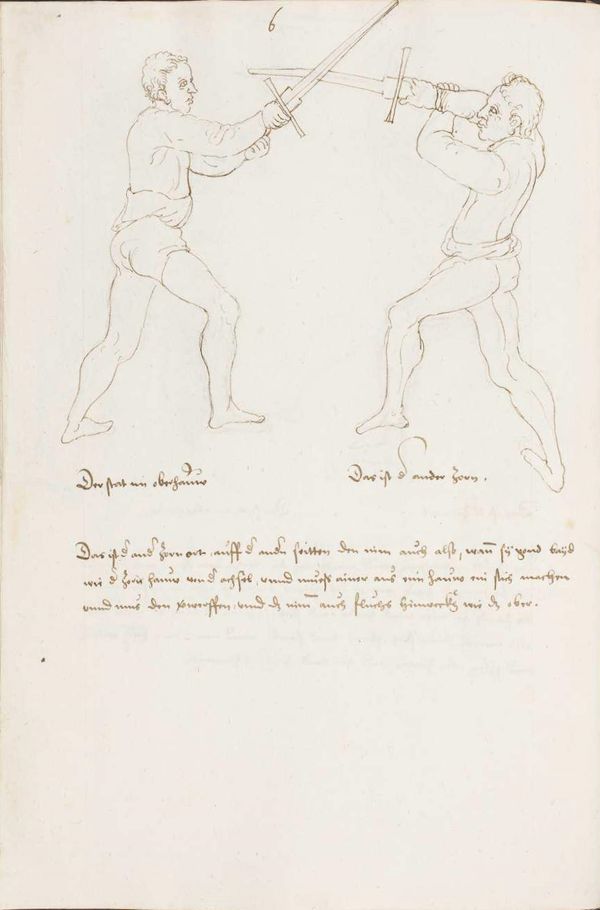 6
Der stat im oberhauw
Das ist d ander zorn.
Das ist d and zorn ort auff d andn seitten den nim auch also, wan sy gond bayd
wie d zorn hauw von d achsel, vnnd muoss ainer aus eim hauw ein stich machen
vnnd mus den verwerffen, vnd dz nim auch fluchs hinweckh wie dz ober.